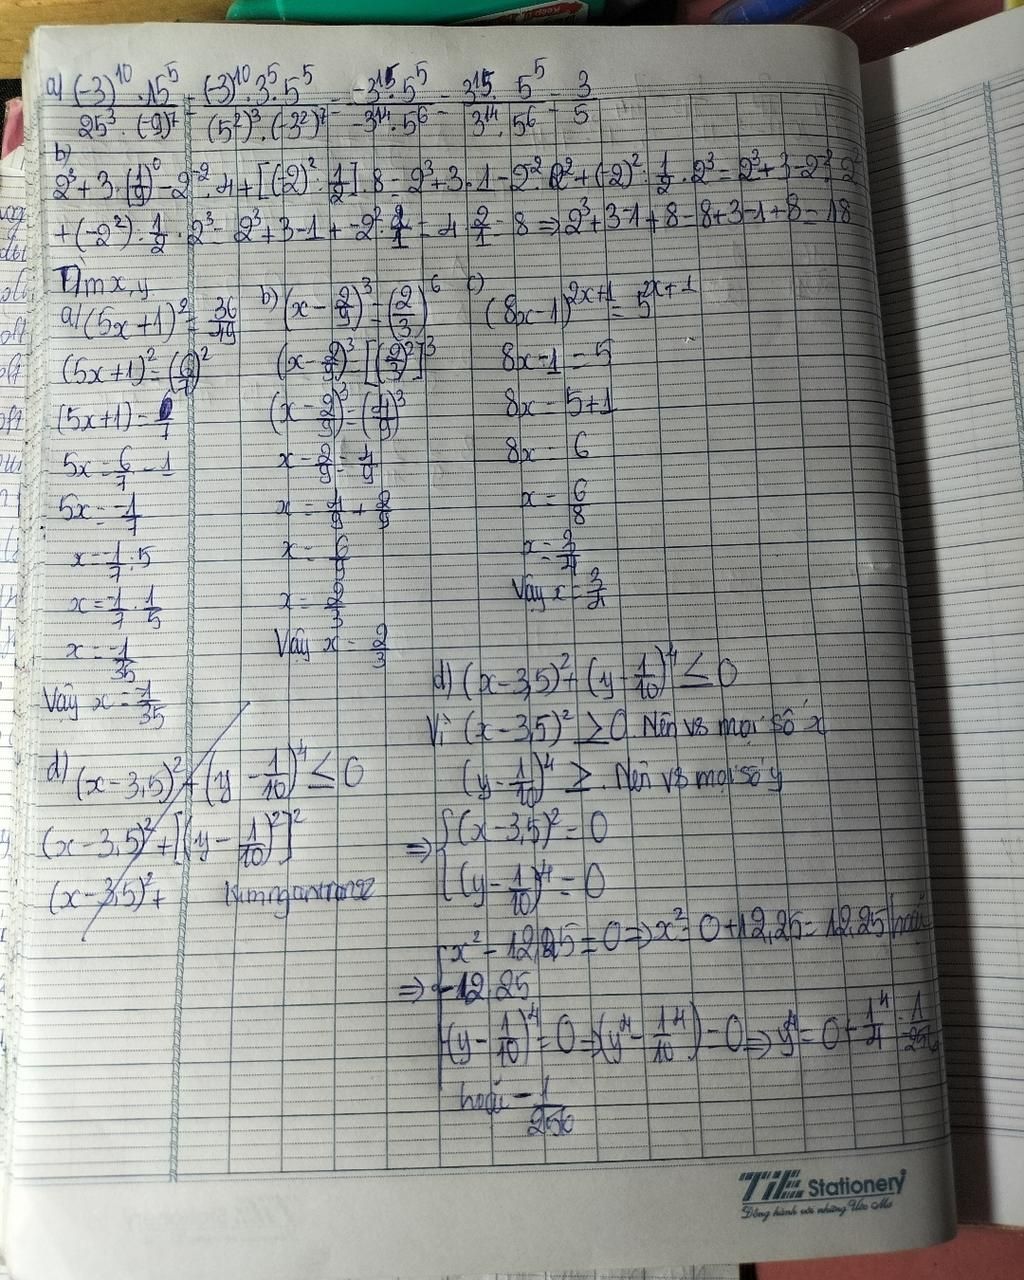 a) (-3)^10 . 15^5 / 25^3 . (-9)^7 = (-3)^10 . 3^5 . 5^5 / (5^2)^3 . (-3^2)^7 = -3^15 . 5^5 / -3^14 . 5^6 = 3^15 . 5^5 / 3^14 . 5^6 = 3/5
b)
2^3 + 3 . (1/9)^0 - 2^-2 . 4 + [(-2)^2 : 1/2] . 8 = 2^3 + 3 . 1 - 2^-2 . 2^2 + (-2)^2 . 1/2 . 2^3 = 2^3 + 3 - 2^-2 . 2^2
+ (-2^2) : 1/2 . 2^3 = 2^3 + 3 - 1 + -2^2 . 2/1 = 4 . 2/1 = 8 => 2^3 + 3 - 1 + 8 = 8 + 3 - 1 + 8 = 18
Tìm x, y
a) (5x+1)^2 = 36/49
(5x+1)^2 = (6/7)^2
(5x+1) = 6/7
5x = 6/7 - 1
5x = -1/7
x = -1/7 . 5
x = -1/7 . 1/5
x = -1/35
Vậy x = -1/35
b) (x - 2/9)^3 = (2/3)^6
(x - 2/9)^3 = [(2/3)^2]^3
(x - 2/9)^3 = (4/9)^3
x - 2/9 = 4/9
x = 4/9 + 2/9
x = 6/9
x = 2/3
Vậy x = 2/3
c)
(8x-1)^2x+1 = 5^2x+1
8x - 1 = 5
8x = 5+1
8x = 6
x = 6/8
x = 3/4
Vậy x = 3/4
d) (x - 3,5)^2 + (y - 1/10)^4 ≤ 0
(x - 3,5)^2 + [(y - 1/10)^2]^2
(x - 3,5)^2 +
kimnganxtrang2
d) (x - 3,5)^2 + (y - 1/10)^4 ≤ 0
Vì (x - 3,5)^2 ≥ 0. Nên vs mọi số x
(y - 1/10)^4 ≥ . Nên vs mọi số y
=> { (x - 3,5)^2 = 0
(y - 1/10)^4 = 0
=> x^2 - 12,25 = 0 => x^2 = 0 + 12,25 = 12,25 hoặc
-12,25
(y - 1/10)^4 = 0 => (y^4 - 1^4/10) = 0 => y^4 = 0 + 1^4/4 = 1/256
hoặc - 1/256
TiE Stationery
Đồng hành với những Ước Mơ